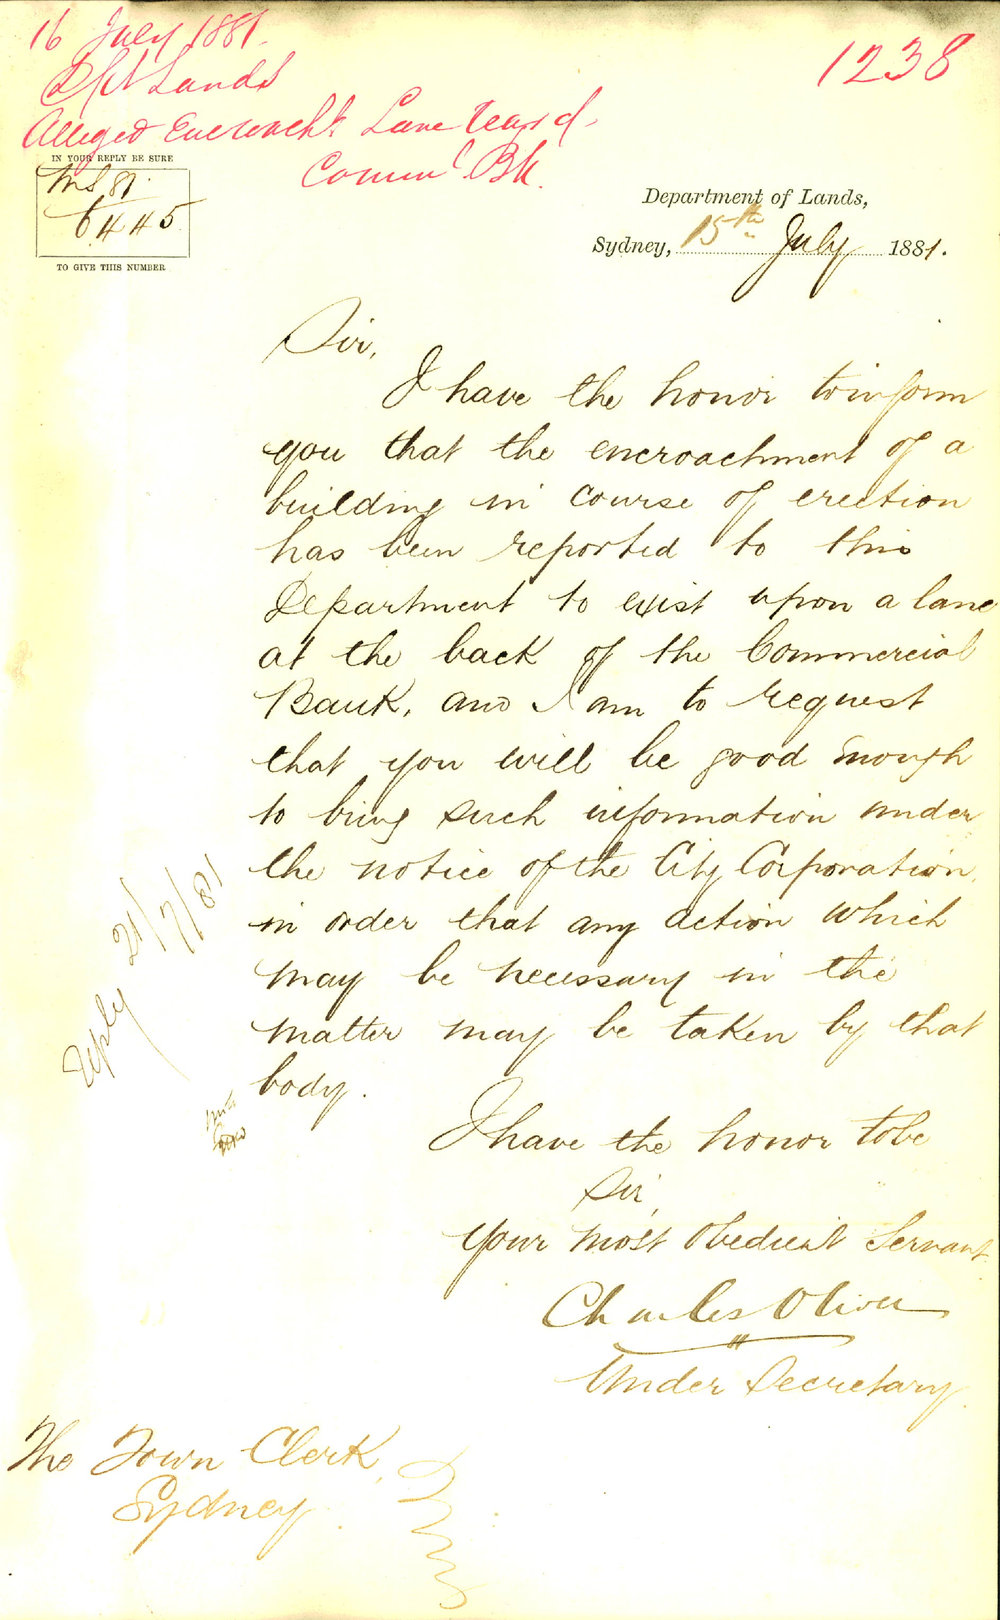 16 July 1881.
1238
Dpt Lands
Alleged Encroacht Lane rear of
Comml Bk.
IN YOUR REPLY BE SURE
MS 81
6445
TO GIVE THIS NUMBER
Department of Lands,
Sydney, 15th July 1881.
Sir,
I have the honor to inform
you that the encroachment of a
building in course of erection
has been reported to this
Department to exist upon a lane
at the back of the Commercial
Bank, and I am to request
that you will be good enough
to bring such information under
the notice of the City Corporation,
in order that any action which
may be necessary in the
matter may be taken by that
body.
Reply 21/7/81
I have the honor to be
Sir,
Your most Obedient Servant
Charles Oliver
Under Secretary.
The Town Clerk,
Sydney.